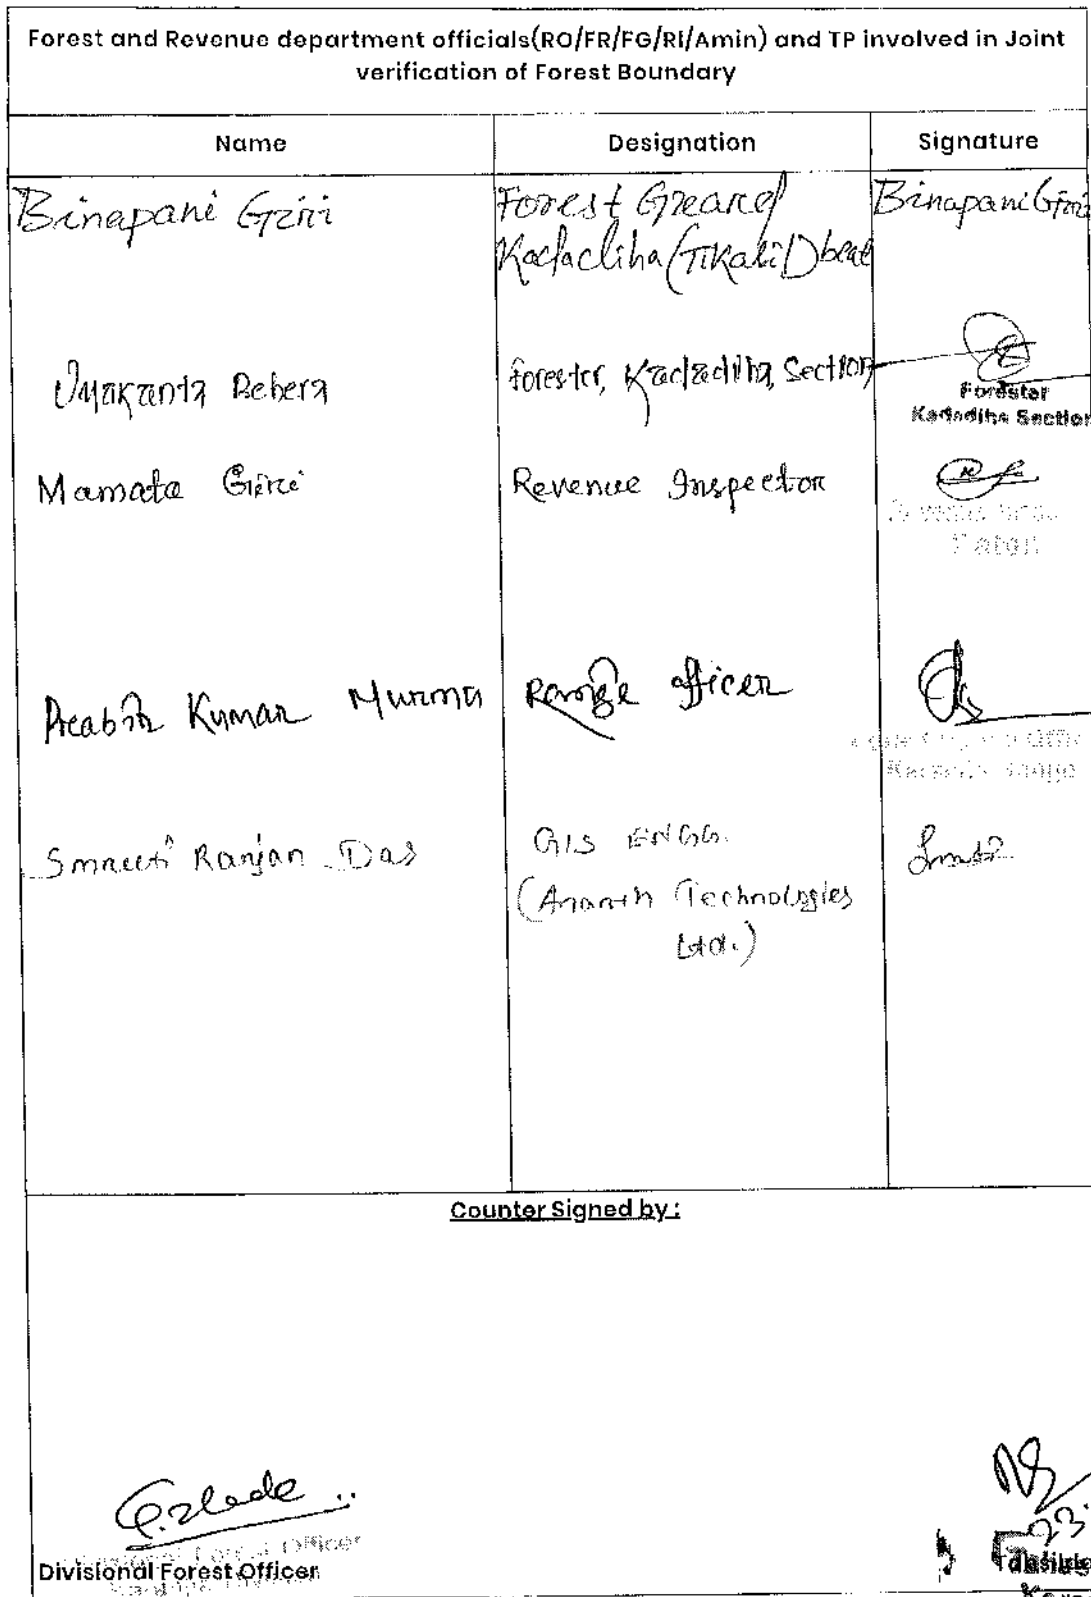 Forest and Revenue department officials(RO/FR/FG/RI/Amin) and TP involved in Joint
verification of Forest Boundary
Name Designation Signature
Binapani Giri Forest Guard Binapani Giri
Kadadiha (Tikali) beat
Umakanta Behera Forester, Kadadiha, Section
Forester
Kadadiha Section
Mamata Giri Revenue Inspector
Prabir Kumar Murmu Range officer
Range
Smruti Ranjan Das GIS ENGG.
(Ananth Technologies
Ltd.)
Counter Signed by :
Forest Officer
Divisional Forest Officer